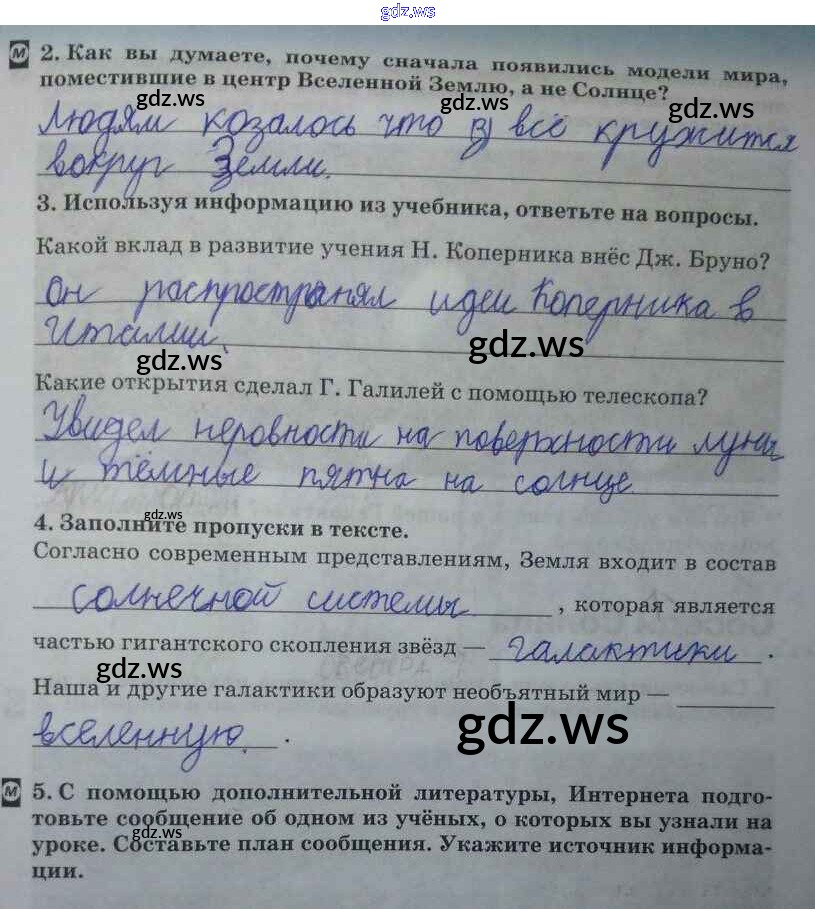 gdz.ws
М 2. Как вы думаете, почему сначала появились модели мира,
поместившие в центр Вселенной Землю, а не Солнце?
gdz.ws gdz.ws gdz.ws
Людям козалось что всё кружится
вокруг Земли.
3. Используя информацию из учебника, ответьте на вопросы.
Какой вклад в развитие учения Н. Коперника внёс Дж. Бруно?
Он распространял идеи Коперника в
Италии.
gdz.ws gdz.ws
Какие открытия сделал Г. Галилей с помощью телескопа?
Увидел неровности на поверхности луны
и тёмные пятна на солнце
gdz.ws
4. Заполните пропуски в тексте.
Согласно современным представлениям, Земля входит в состав
солнечной системы , которая является
частью гигантского скопления звёзд — галактики .
gdz.ws
Наша и другие галактики образуют необъятный мир —
gdz.ws
вселенную .
М 5. С помощью дополнительной литературы, Интернета подго-
товьте сообщение об одном из учёных, о которых вы узнали на
gdz.ws gdz.ws
уроке. Составьте план сообщения. Укажите источник информа-
ции.